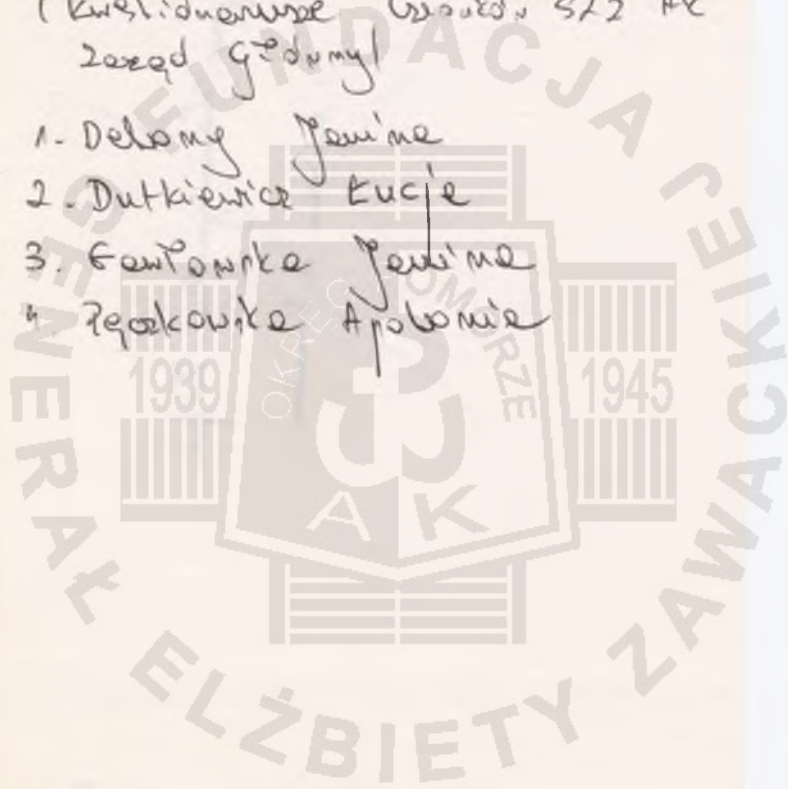 (Kwestionariusze Członków ŚZŻ AK
Zarząd Główny)
1. Delony Janina
2. Dutkiewicz Łucja
3. Gawłowska Janina
4 Apolonia
FUNDACJA
GENERAŁ ELŻBIETY ZAWACKIEJ
OKRĘG POMORZE
1939
1945
AK